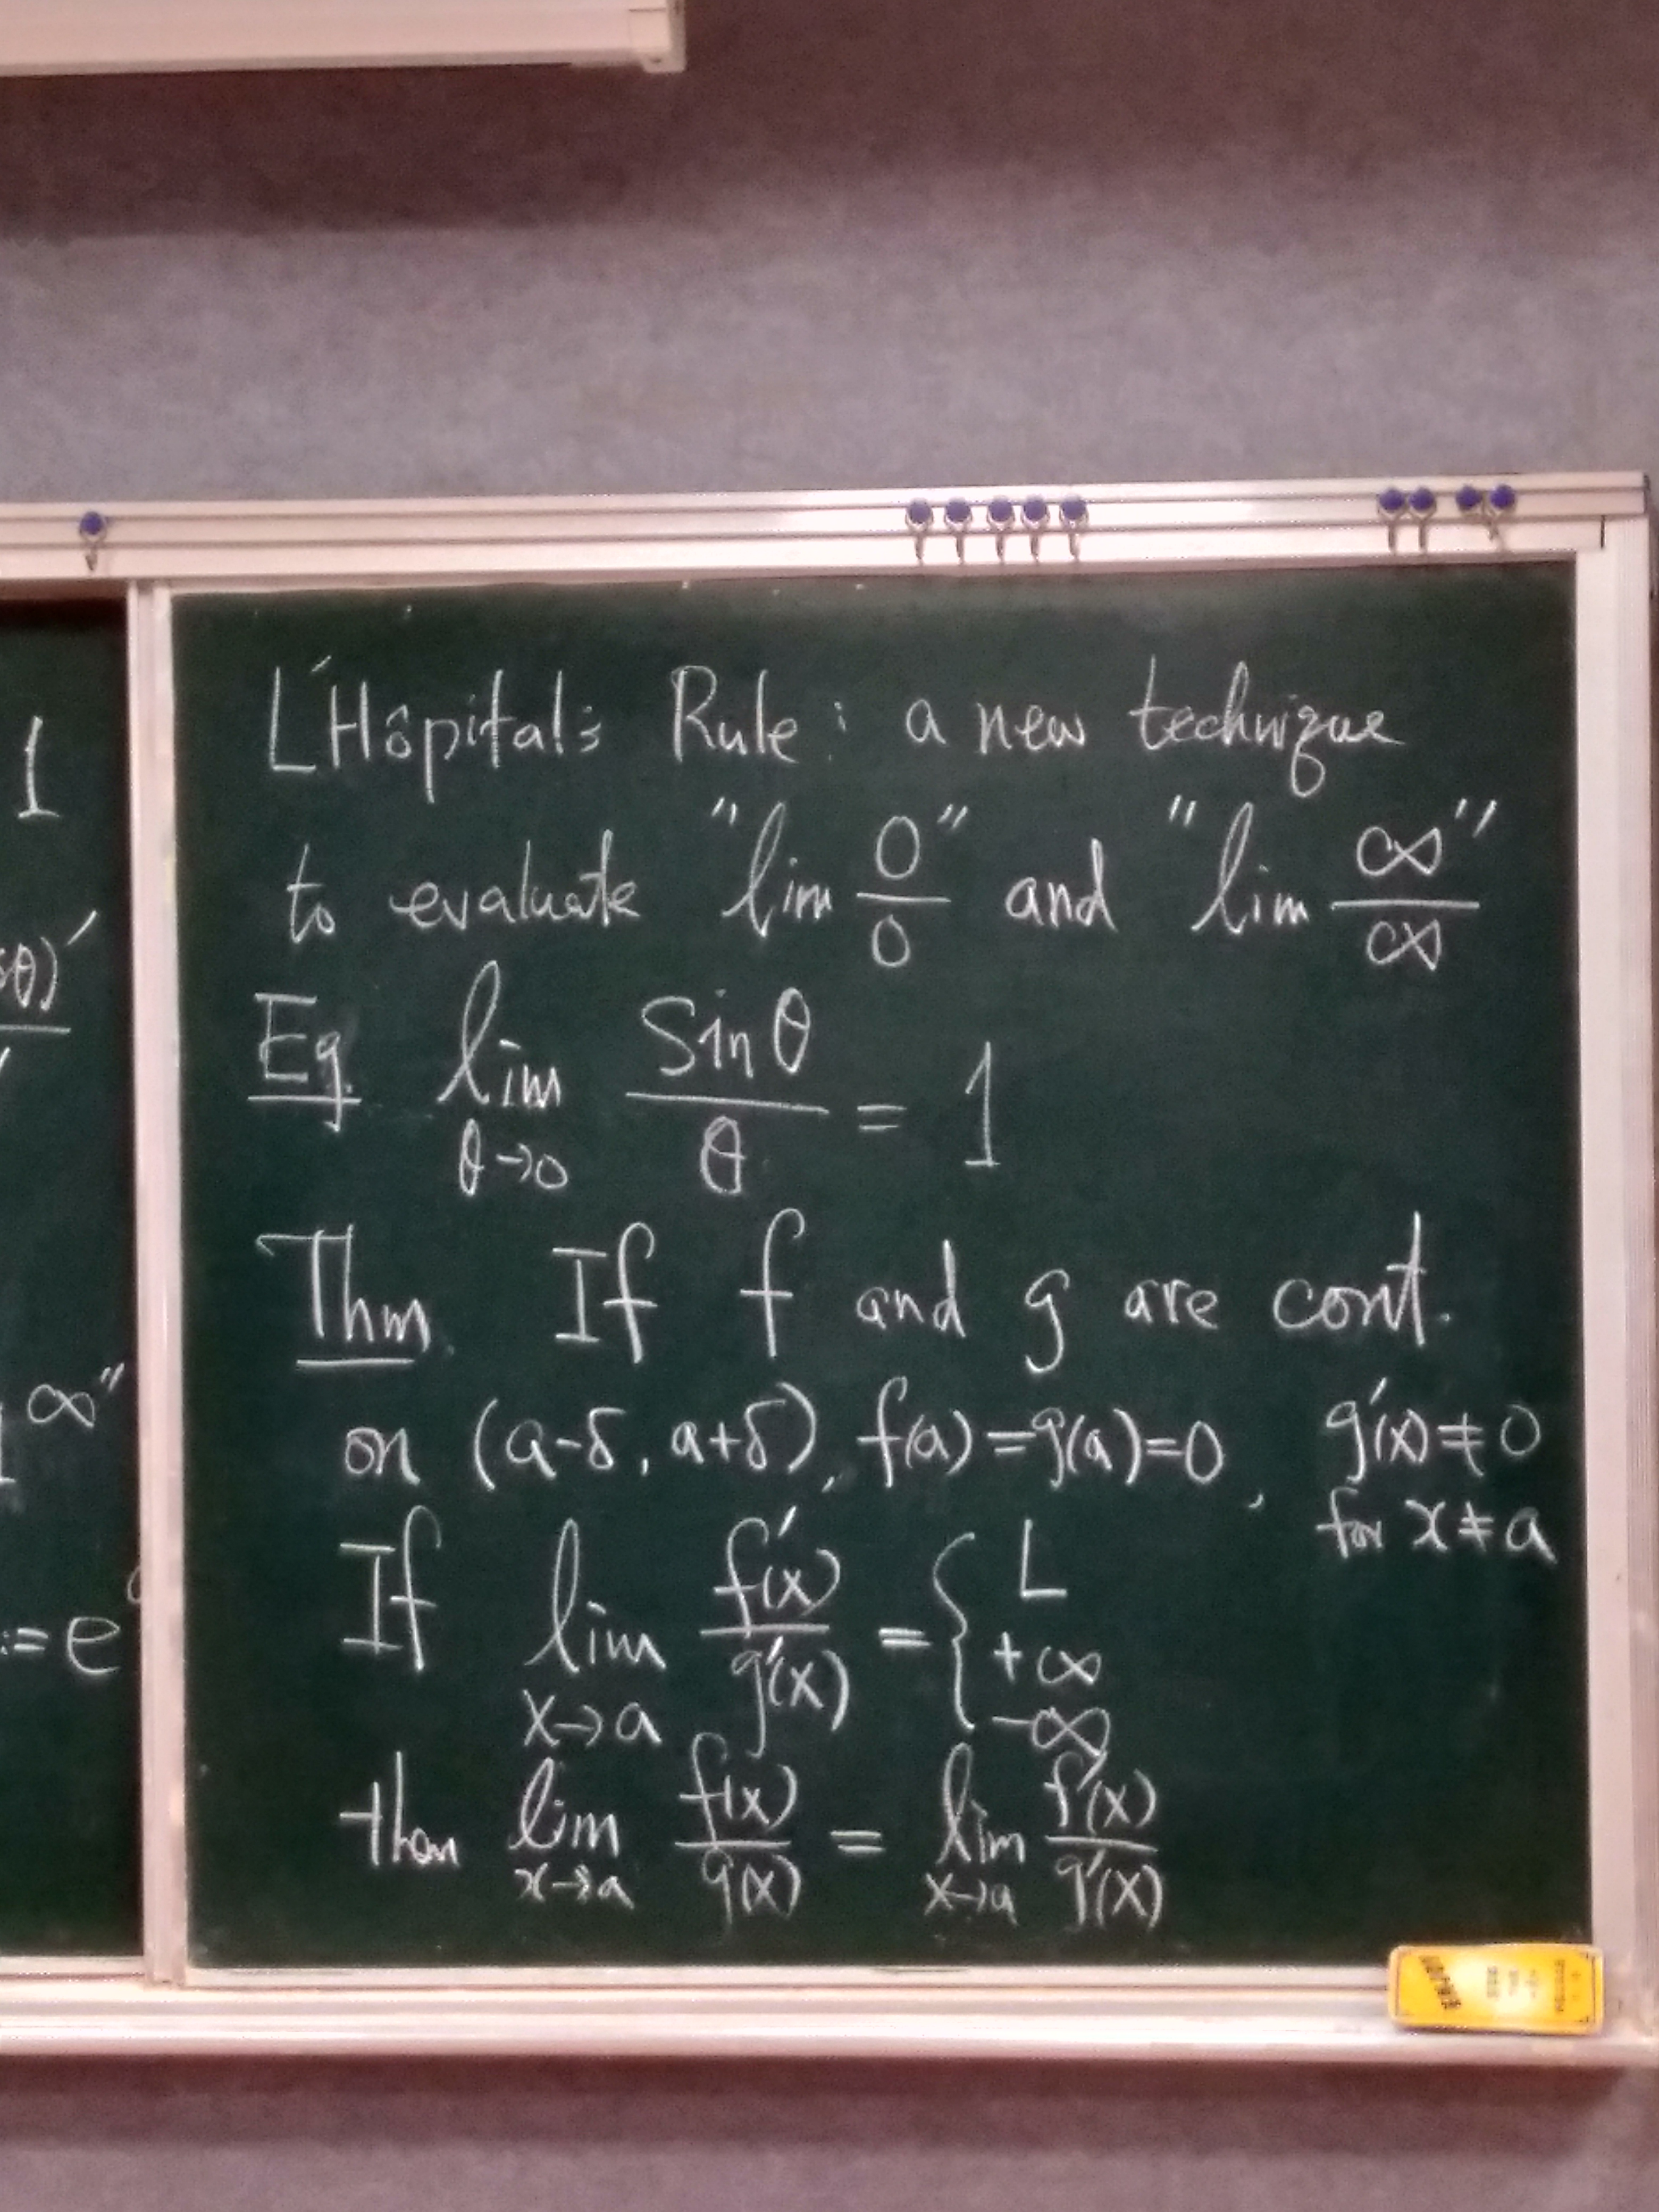 1
θ)'
∞"
:=e
L'Hôpital's Rule: a new technique
to evaluate "lim 0/0" and "lim ∞/∞"
Eg. lim θ→0 Sinθ/θ = 1
Thm. If f and g are cont.
on (a-δ, a+δ), f(a)=g(a)=0, g'(x)≠0
for x≠a
If lim x→a f'(x)/g'(x) = { L
+∞
-∞
then lim x→a f(x)/g(x) = lim x→a f'(x)/g'(x)